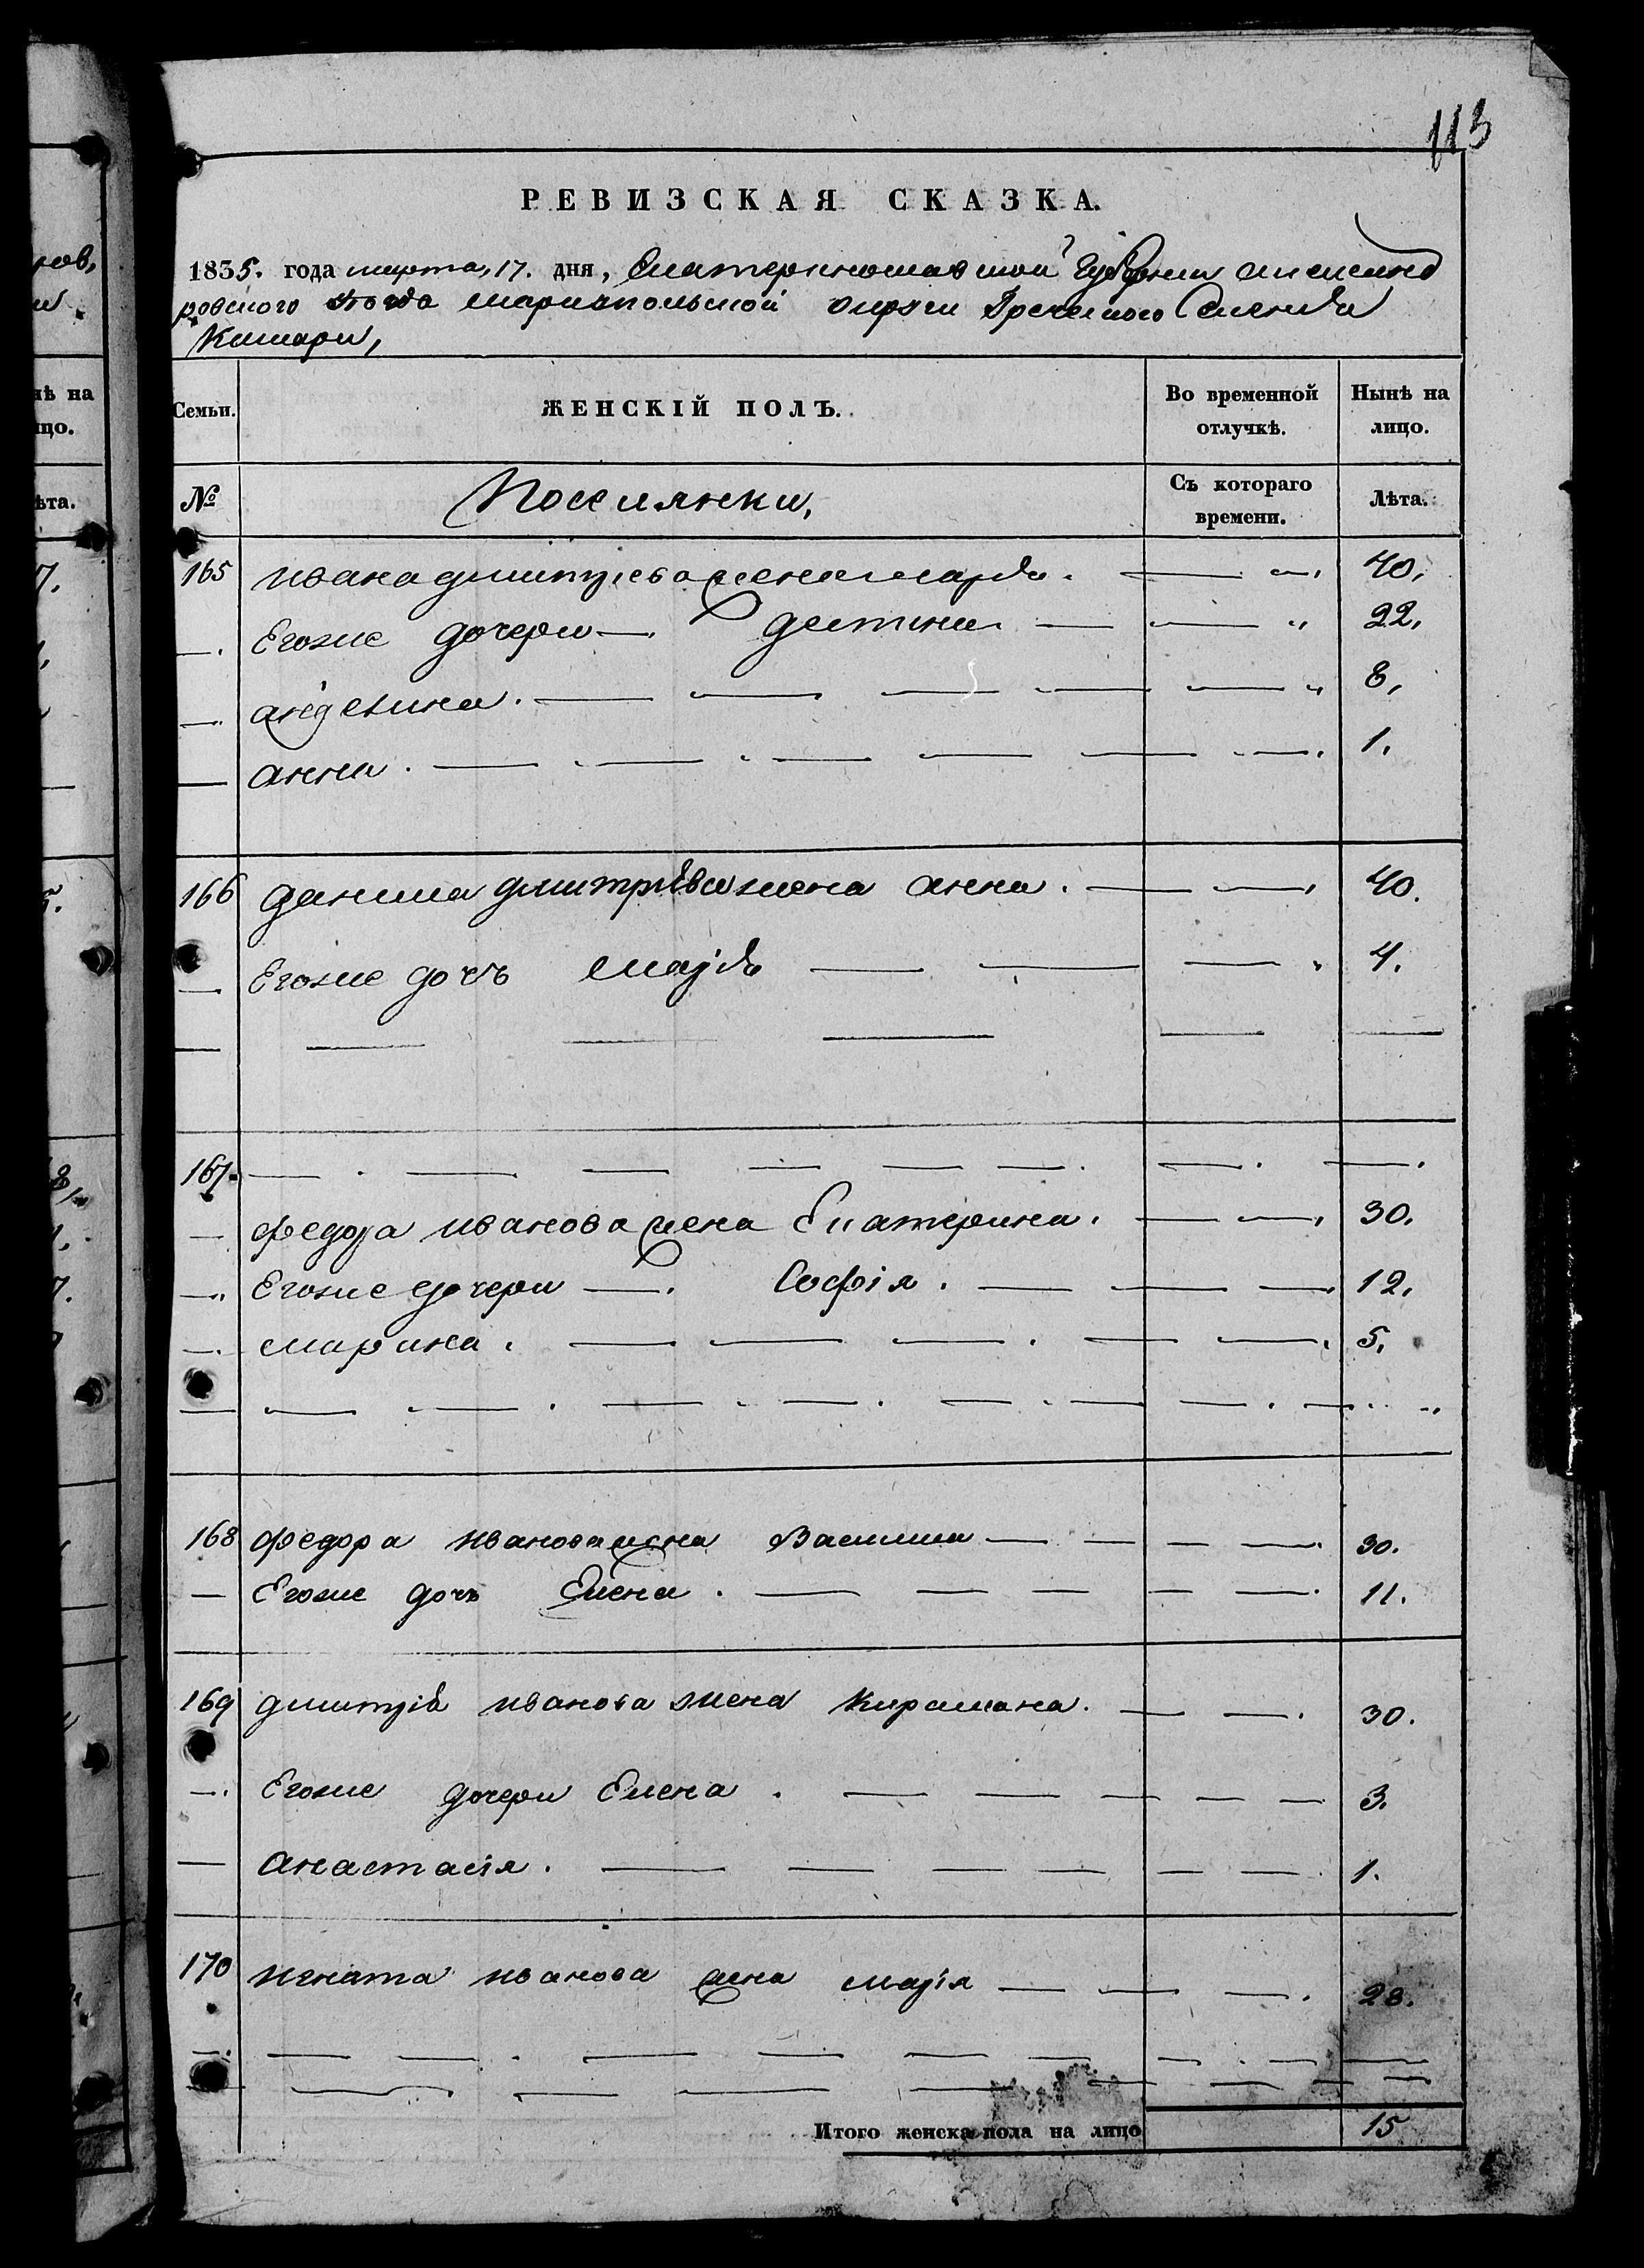 113
РЕВИЗСКАЯ СКАЗКА.
1835. года марта, 17. дня, Екатеринославской Губернии александ
ровского уѣзда мариупольской округи Греческого Селенія
Камари,
Семьи. ЖЕНСКІЙ ПОЛЪ. Во временной отлучкѣ. Нынѣ на лицо.
№ Поселянки, Съ котораго времени. Лѣта.
165 ивана дмитріева жена марія. 40,
Егоже дочери 22,
8,
анна. 1.
166 данила дмитріева жена анна. 40.
Егоже дочъ марія 4.
167.
федора иванова жена Екатерина. 30.
Егоже дочери Софія. 12,
марина. 5,
168 федора иванова жена Василиса 30.
Егоже дочъ Елена. 11.
169 дмитрія иванова жена 30.
Егоже дочери Елена. 3.
анастасія. 1.
170 игната иванова жена марія 28.
Итого женска пола на лицо 15